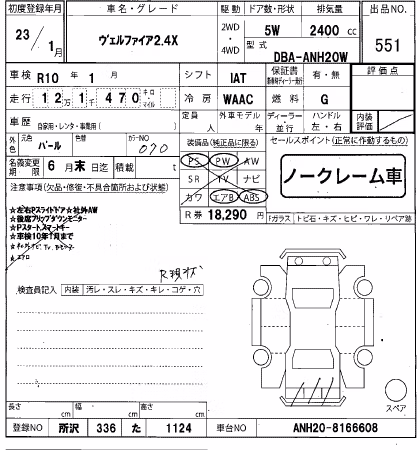 初度登録年月 車名・グレード 駆動 ドア数・形状 排気量 出品NO.
23/1月 ヴェルファイア2.4X 2WD・4WD 5W 2400cc 551
型式 DBA-ANH20W
車検 R10年1月 シフト IAT 保証書 有・無 評価点
走行 12万1千470 キロ・マイル 冷房 WAAC 燃料 G
車歴 自家用・レンタ・事業用( ) 定員 人 外車モデル 年 ディーラー・並行 ハンドル 左・右 内装評価
外色 パール 色替 カラーNO 070 装備品(純正品に限る) セールスポイント(正常に作動するもの)
名義変更期限 6月末日迄 積載 t PS PW AW
注意事項(欠品・修復・不具合箇所および状態) SR TV ナビ ノークレーム車
カワ エアB ABS
★左右Pスライドドア★社外AW
★後席フリップダウンモニター
★Pスタート★スマートキー
★車検10年1月まで
R券 18,290円 Fガラス トビ石・キズ・ヒビ・ワレ・リペア跡
★エアロ
検査員記入 内装 汚レ・スレ・キズ・キレ・コゲ・穴
スペア
長さ cm 幅 cm 高さ cm
登録NO 所沢 336 た 1124 車台NO ANH20-8166608